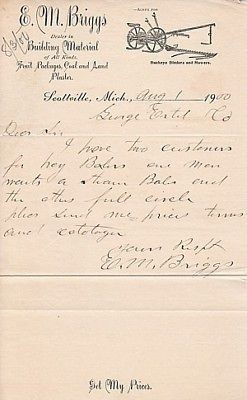 E. M. Briggs
Dealer in
Building Material
of All Kinds.
Fruit Packages, Coal and Land
Plaster.
AGENTS FOR
Buckeye Binders and Mowers.
Scottville, Mich., Aug 1 1900
George Ertel Co
Dear Sir
I have two customers
for hay Balers one man
wants a steam Baler and
the other full circle
pleas send me prices terms
and catalogue
Yours Respt
E. M. Briggs
Get My Prices.